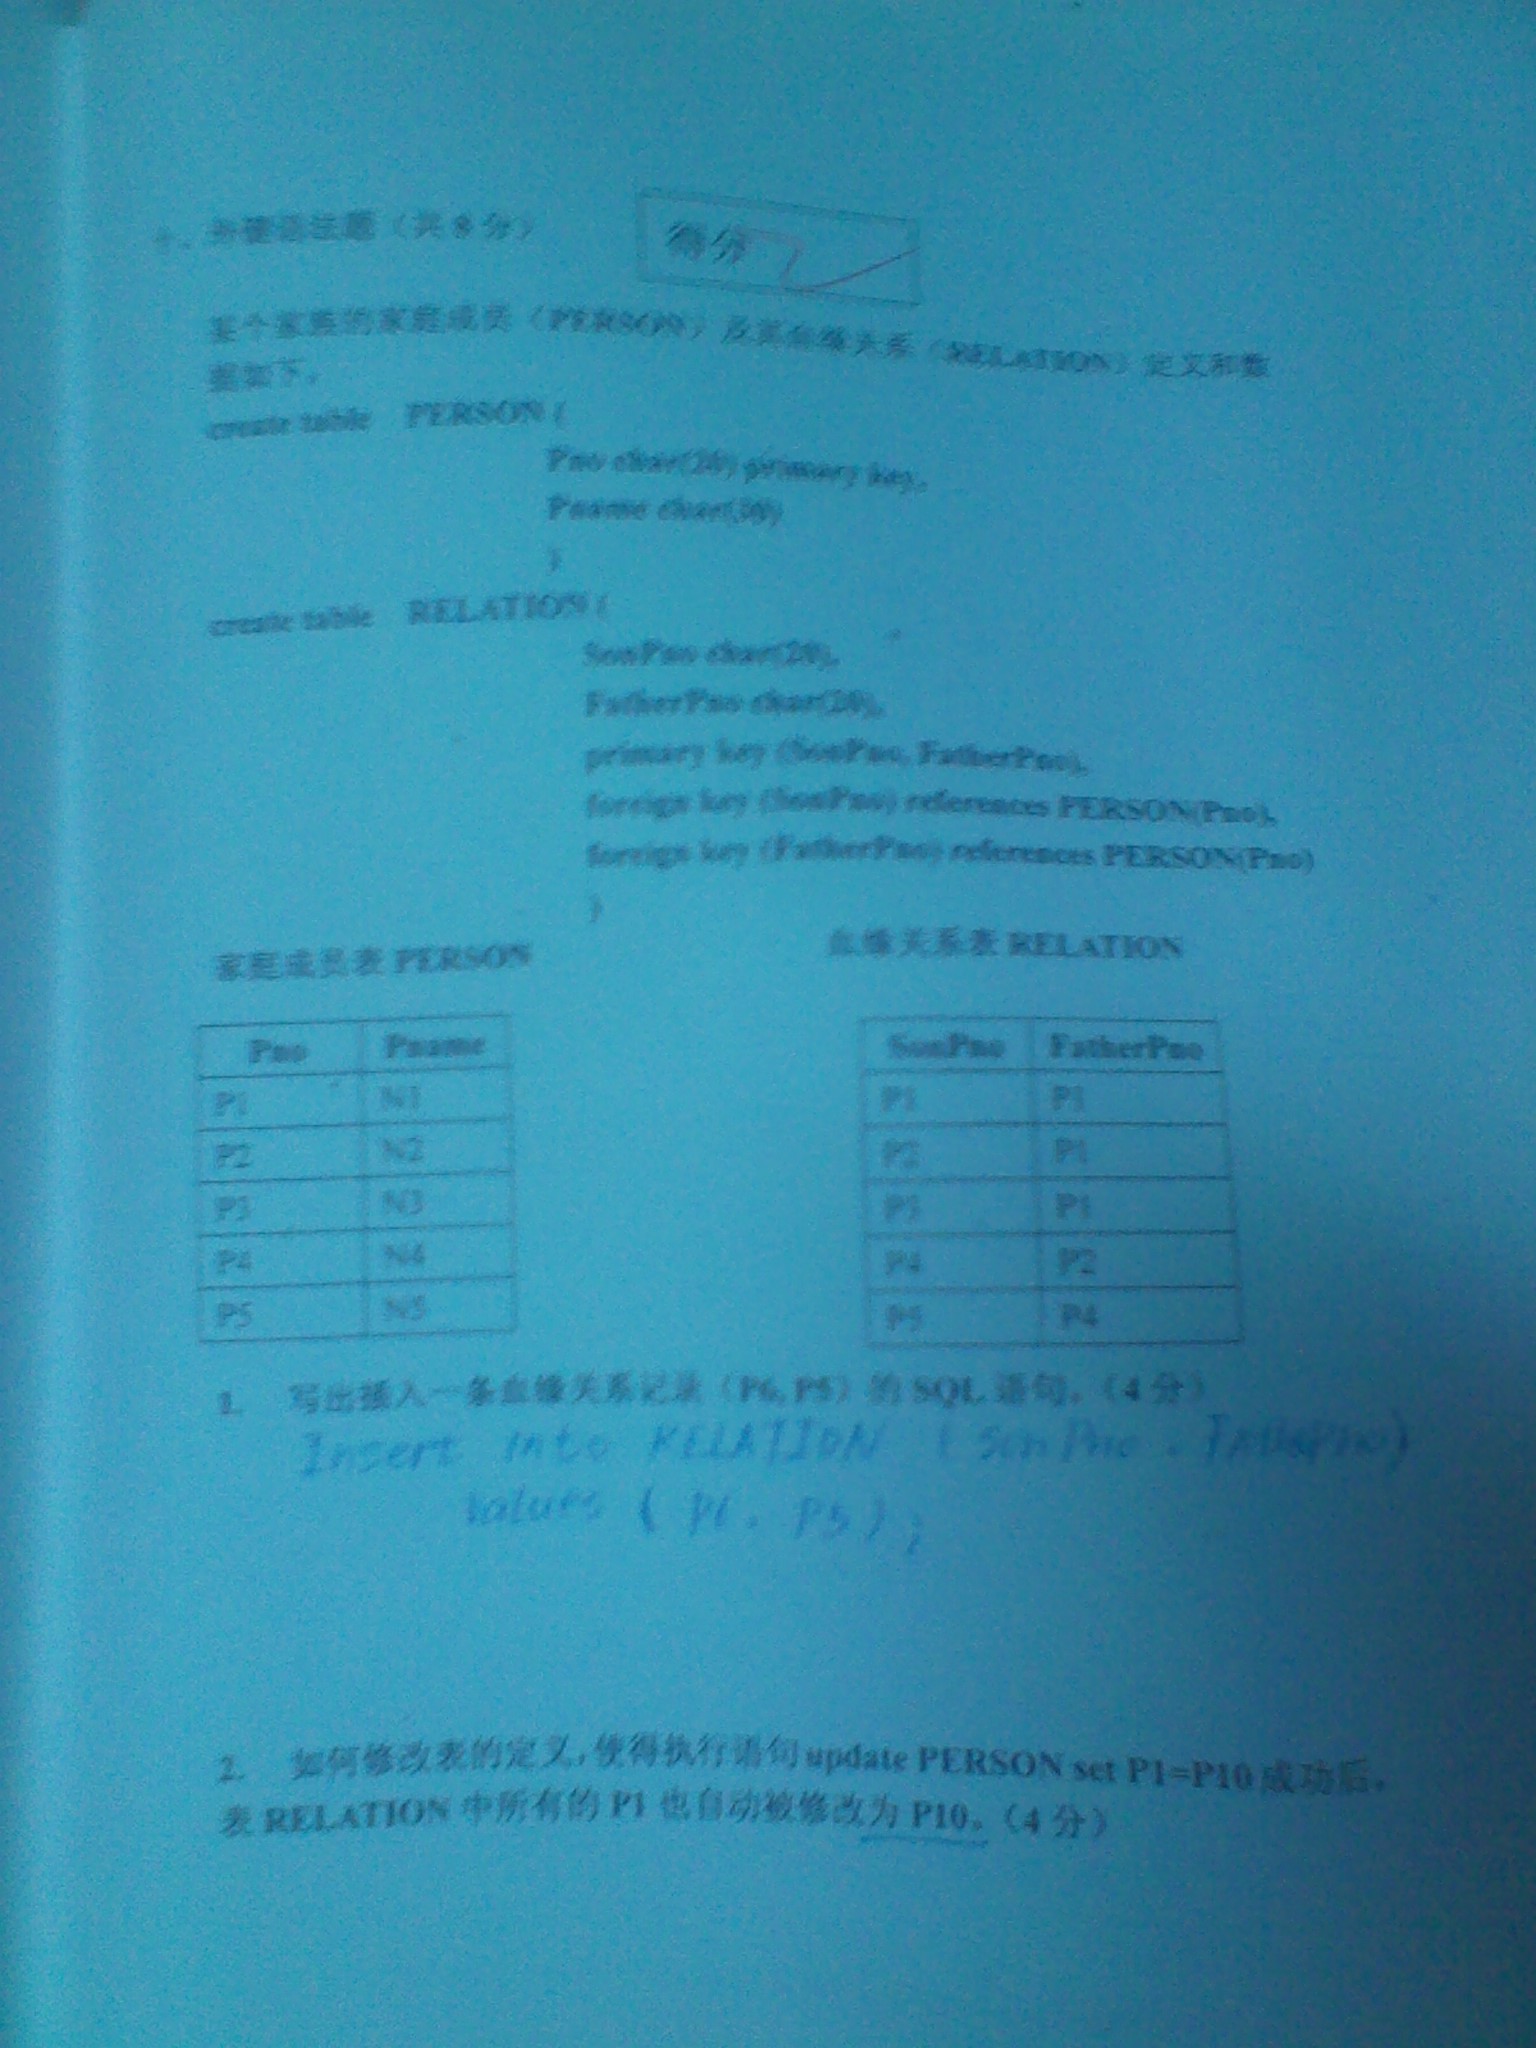 十、外键语法题（共 8 分）
得分 7
某个家族的家庭成员（PERSON）及其血缘关系（RELATION）定义和数
据如下。
create table PERSON (
Pno char(20) primary key,
Pname char(30)
)
create table RELATION (
SonPno char(20),
FatherPno char(20),
primary key (SonPno, FatherPno),
foreign key (SonPno) references PERSON(Pno),
foreign key (FatherPno) references PERSON(Pno)
)
家庭成员表 PERSON 血缘关系表 RELATION
Pno Pname SonPno FatherPno
P1 N1 P1 P1
P2 N2 P2 P1
P3 N3 P3 P1
P4 N4 P4 P2
P5 N5 P5 P4
1. 写出插入一条血缘关系记录（P6, P5）的 SQL 语句。（4 分）
Insert into RELATION (SonPno, FatherPno)
values (P6, P5);
2. 如何修改表的定义,使得执行语句 update PERSON set P1=P10 成功后,
表 RELATION 中所有的 P1 也自动被修改为 P10。（4 分）